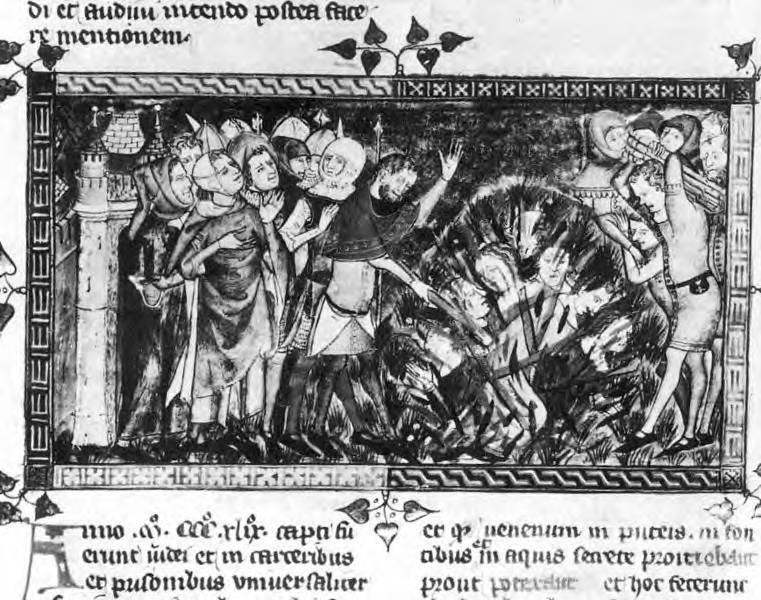 di et audiui intendo postea face
re mentionem.
Anno .Mº. CCCº. xlixº. capti fu
erunt iudei et in carceribus
et prisonibus vniuersaliter
et qr uenenum in puteis. in fon
tibus et in aquis secrete proitiebant
prout poterant et hoc fecerunt